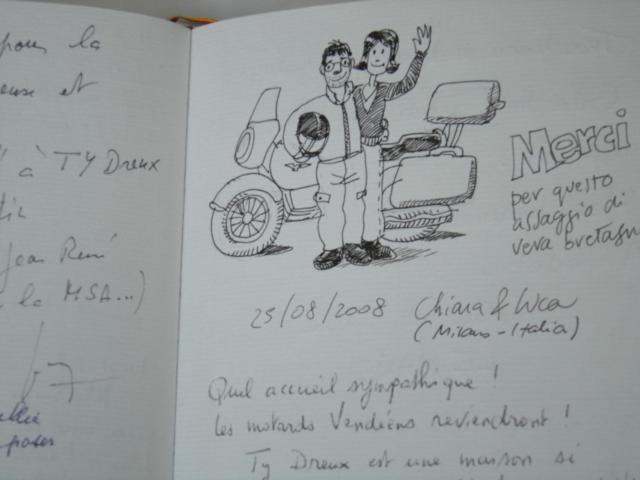 pour la
et
à TY Dreux
Jean René
la MSA...)
Merci
per questo
assaggio di
vera bretagn
25/08/2008 Chiara & Luca
(Milano - Italia)
Quel accueil sympathique !
Les motards Vendéens reviendront !
Ty Dreux est une maison si